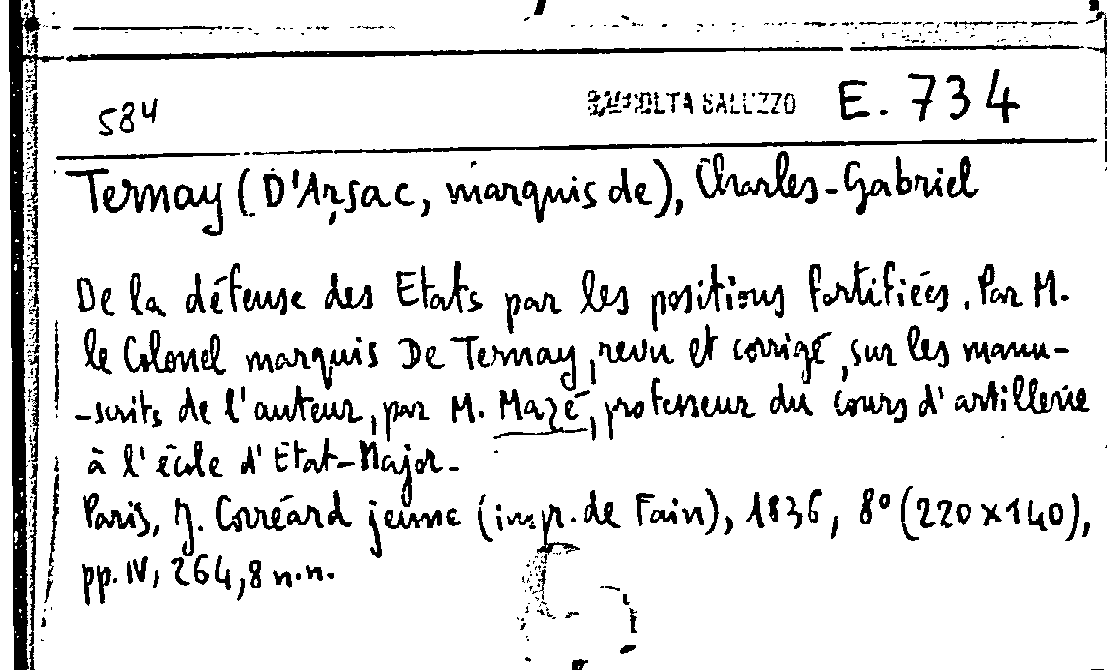 584 RACCOLTA SALUZZO E. 734
Ternay (D'Arsac, marquis de), Charles-Gabriel
De la défense des Etats par les positions fortifiées. Par M.
le Colonel marquis De Ternay, revu et corrigé, sur les manu-
-scrits de l'auteur, par M. Mazé, professeur du cours d'artillerie
à l'école d'Etat-Major.
Paris, J. Corréard jeune (impr. de Fain), 1836, 8° (220x140),
pp. IV, 264, 8 n.n.